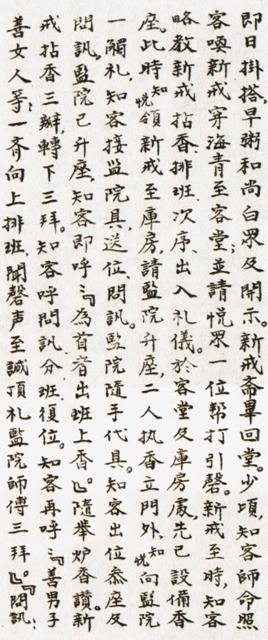 即日掛搭，早粥和尚白眾及開示。新戒齋畢回堂。少頃，知客師命照
客喚新戒穿海青至客堂；並請悅眾一位幫打引磬。新戒至時，知客
略教新戒拈香、排班、次序、出入礼儀。於客堂及庫房處，先已設備香
座。此時知悅領新戒至庫房，請監院升座，二人执香立門外，知悅向監院
一觸礼，知客接监院具，送位、問訊。监院隨手代具。知客出位叅座及
問訊。監院已升座，知客即呼：『為首者出班上香。』隨舉炉香讚，新
戒拈香三瓣，轉下三拜。知客呼問訊，分班，復位。知客再呼：『善男子
善女人等：一齊向上排班，聞磬声至誠頂礼監院師傅三拜。』『問訊：